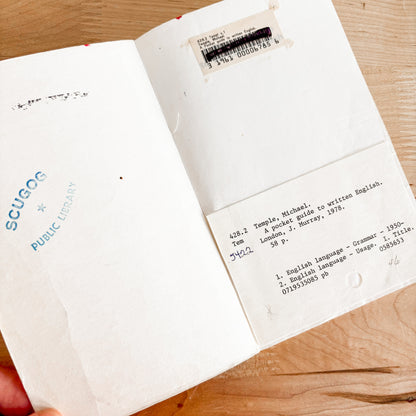 SCUGOG
PUBLIC LIBRARY
3 1961 00006785 6
428.2 Temple, Michael.
Tem A pocket guide to written English.
London, J. Murray, 1978.
5422
58 p.
1. English language - Grammar - 1950-
2. English language - Usage. I. Title.
0719535085 pb 0583653